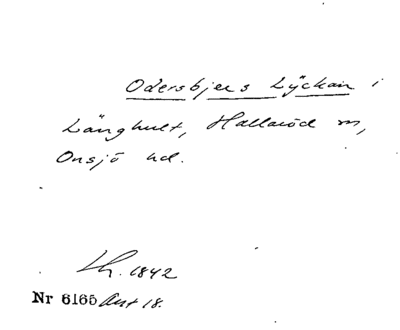 Odersbjers Lÿckan i
Långhult, Hallaröd sn,
Onsjö hd.
Lh. 1842
Nr 6165 Ant 18.